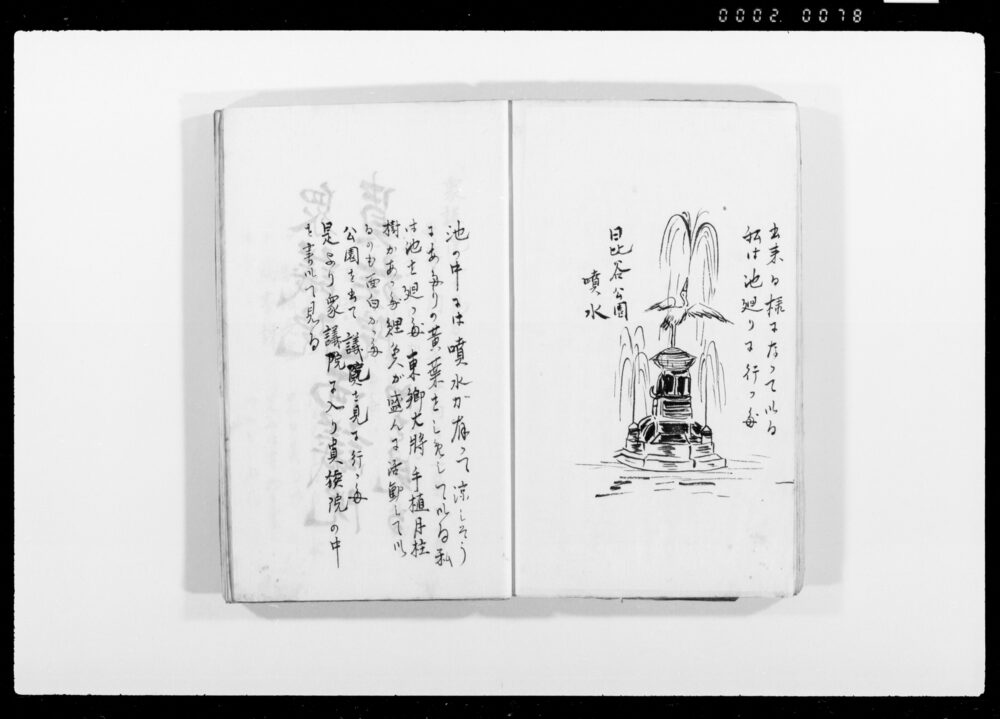 0002. 0078
出来る様になって以る
私は池廻りに行った
日比谷公園
噴水
池の中には噴水が有って涼しそう
にあたりの黄葉をしめして以る私
は池を廻った東郷大将手植月桂
樹があった鯉魚が盛んに活動して以
るのも面白かった
公園を出て議院を見に行った
是より衆議院に入り貴族院の中
を書以て見る